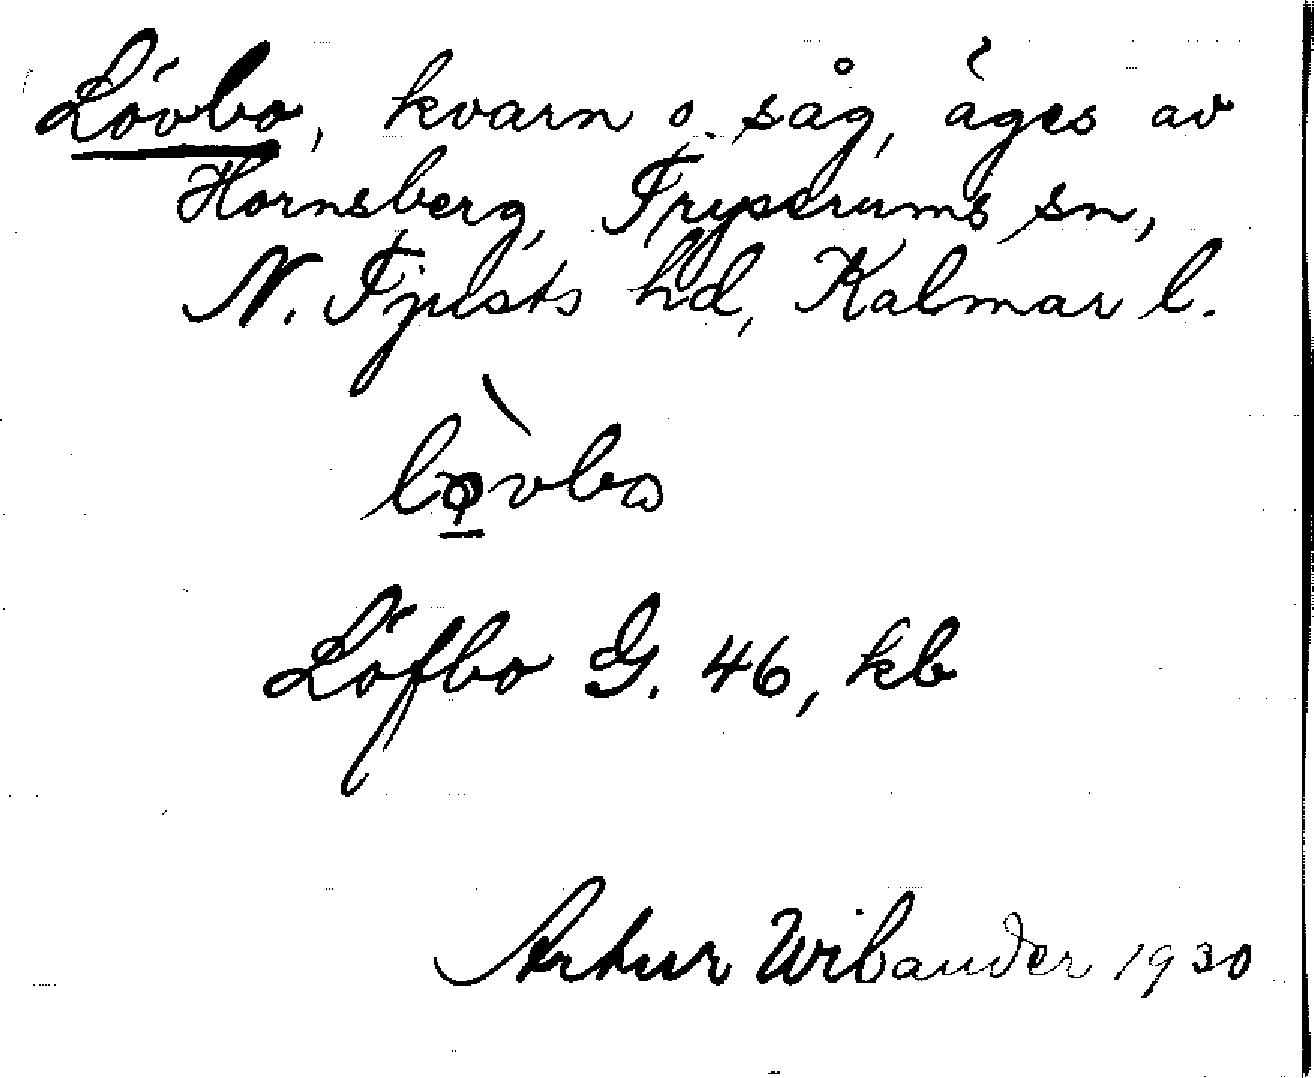 Lövbo, kvarn o. såg, äges av
Hornsberg, Tryserums sn,
N. Tjusts hd, Kalmar l.
Löfbo G. 46, kb
Artur Wilander 1930